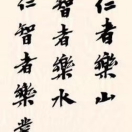 仁者樂山
智者樂水
仁智者樂